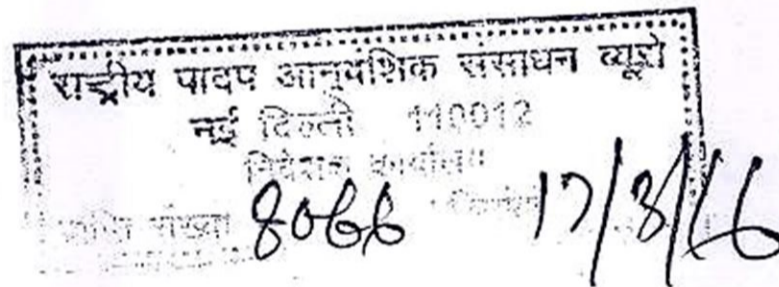 राष्ट्रीय पादप आनुवंशिक संसाधन ब्यूरो
नई दिल्ली 110012
निदेशक कार्यालय
प्राप्ति संख्या 8066 17/8/16